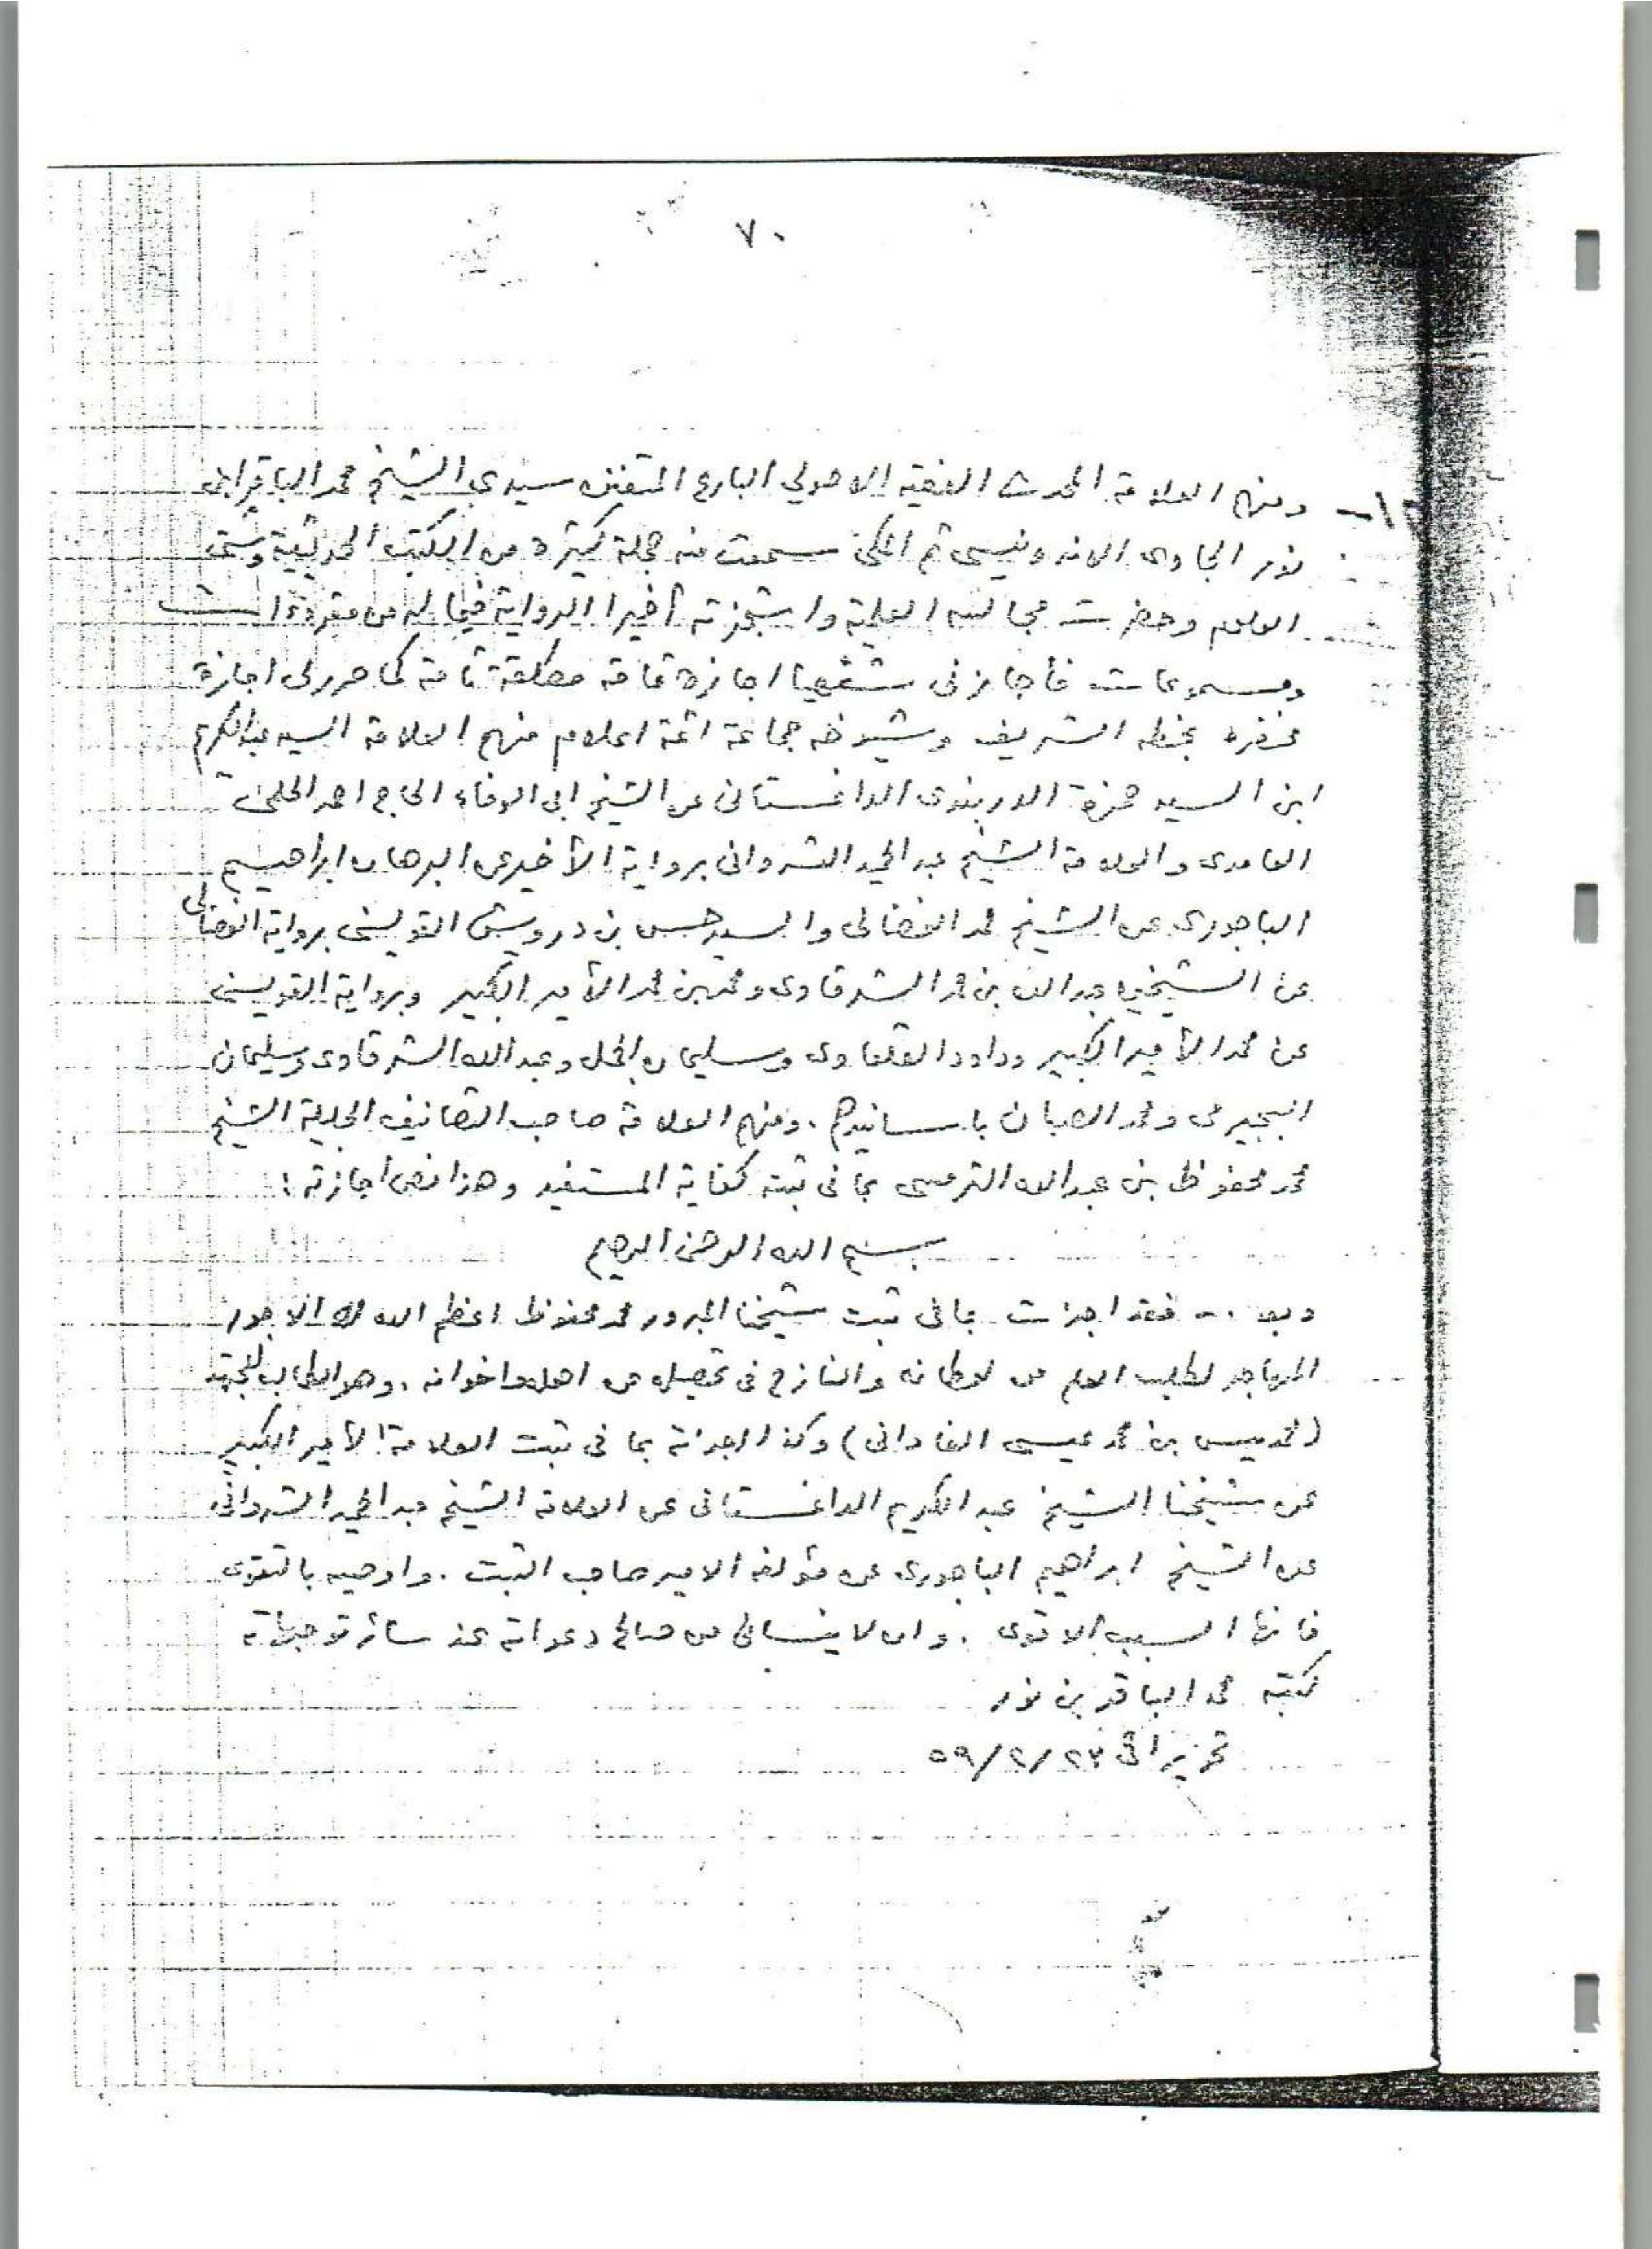 ٧٠
١٢- ومنهم العلامة المحدث الفقيه الاصولي البارع المتفنن سيدي الشيخ محمد الباقر ابن
نور الجاوى الاندونيسى ثم المكى سمعت منه جملة كثيرة من الكتب الحديثية وشتى
العلوم وحضرت مجالسه العلمية واستجزته أخيرا الرواية فيما له من مقروءات
ومسموعات فأجازنى شفهيا اجازة عامة مطلقة تامة كما حرر لى اجازة
بخطه الشريف وشيوخه جماعة ائمة اعلام منهم العلامة السيد عبدالكريم
ابن السيد حمزة الدربندى الداغستانى عن الشيخ ابى الوفاء الحاج احمد
الغامدى والعلامة الشيخ عبد الحميد الشروانى برواية الأخير عن البرهان ابراهيم
الباجورى عن الشيخ محمد الفضالى والسيد حسن بن درويش القويسنى برواية الفضالى
عن الشيخين عبدالله بن محمد الشرقاوى ومحمد بن محمد الأمير الكبير وبرواية القويسنى
عن محمد الأمير الكبير وداود القلعاوى وسليمان الجمل وعبد الله الشرقاوى وسليمان
البجيرمى ومحمد الصبان باسانيدهم . ومنهم العلامة صاحب التصانيف الجليلة الشيخ
محمد محفوظ بن عبدالله الترمسى بما فى ثبته كفاية المستفيد وهذا نص اجازته :
بسم الله الرحمن الرحيم
وبعد .. فقد اجزت بما فى ثبت شيخنا المبرور محمد محفوظ اعظم الله له الاجور
المهاجر لطلب العلم من اوطانه والنازح فى تحصيله عن اهله واخوانه . وهو الطالب المجتهد
(محمد يسن بن محمد عيسى الفادانى) وكذا اجزته بما فى ثبت العلامة الأمير الكبير
عن شيخنا الشيخ عبد الكريم الداغستانى عن العلامة الشيخ عبد الحميد الشروانى
عن الشيخ ابراهيم الباجورى عن مؤلفه الامير صاحب الثبت . واوصيه بالتقوى
فانها السبب الاقوى . وان لا ينسانى من صالح دعواته عند سائر توجهاته
كتبه محمد الباقر بن نور
تحريرا فى ٢٣/٢/٥٩